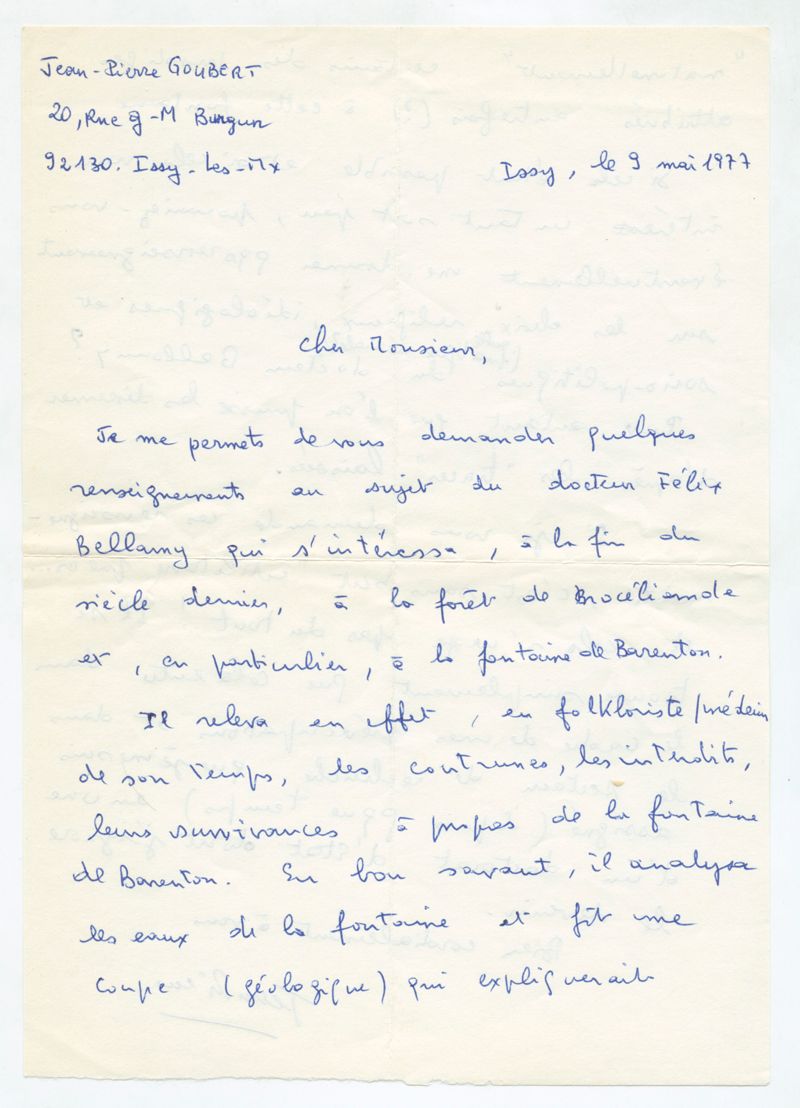 Jean-Pierre GOUBERT
20, Rue J-M Burgun
92130. Issy-Les-Mx
Issy, le 9 mai 1977
Cher Monsieur,
Je me permets de vous demander quelques
renseignements au sujet du docteur Félix
Bellamy qui s'intéressa, à la fin du
siècle dernier, à la forêt de Brocéliande
et, en particulier, à la fontaine de Barenton.
Il releva en effet, en folkloriste/médecin
de son temps, les coutumes, les interdits,
leurs survivances à propos de la fontaine
de Barenton. En bon savant, il analysa
les eaux de la fontaine et fit une
coupe (géologique) qui expliquerait